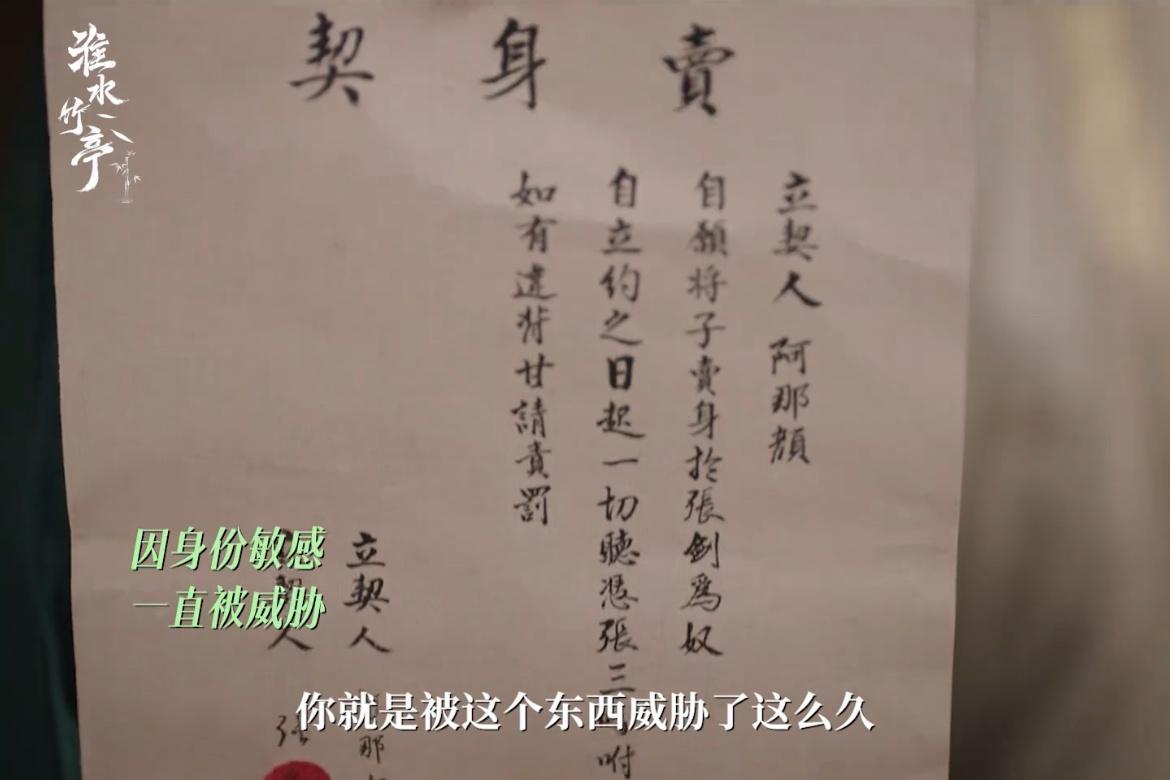 淮水竹亭
賣身契
立契人 阿那顏
自願將子賣身於張劍爲奴
自立約之日起一切聽憑張三 咐
如有違背甘請責罰
立契人 那
契人 張
因身份敏感
一直被威胁
你就是被这个东西威胁了这么久